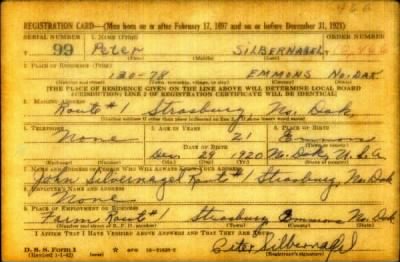 REGISTRATION CARD—(Men born on or after February 17, 1897 and on or before December 31, 1921)
SERIAL NUMBER 1. NAME (Print) ORDER NUMBER
99 Peter SILBERNAGEL 10,466
(First) (Middle) (Last)
2. PLACE OF RESIDENCE (Print)
130-78 EMMONS No. DAK
(Number and street) (Town, township, village, or city) (County) (State)
[THE PLACE OF RESIDENCE GIVEN ON THE LINE ABOVE WILL DETERMINE LOCAL BOARD
JURISDICTION; LINE 2 OF REGISTRATION CERTIFICATE WILL BE IDENTICAL]
3. MAILING ADDRESS
Route #1 Strasburg No. Dak.
[Mailing address if other than place indicated on line 2. If same insert word same]
4. TELEPHONE 5. AGE IN YEARS 6. PLACE OF BIRTH
None 21 Emmons
DATE OF BIRTH
Dec. 29 1920 No. Dak U.S.A.
7. NAME AND ADDRESS OF PERSON WHO WILL ALWAYS KNOW YOUR ADDRESS
John Silvernagel Route #1 Strasburg, No. Dak
8. EMPLOYER'S NAME AND ADDRESS
None
9. PLACE OF EMPLOYMENT OR BUSINESS
Farm Route #1 Strasburg Emmons No. Dak
(Number and street or R. F. D. number) (Town) (County) (State)
I AFFIRM THAT I HAVE VERIFIED ABOVE ANSWERS AND THAT THEY ARE TRUE.
D. S. S. Form 1 Peter Silbernagel
(Revised 1-1-42) (over) (Registrant's signature)